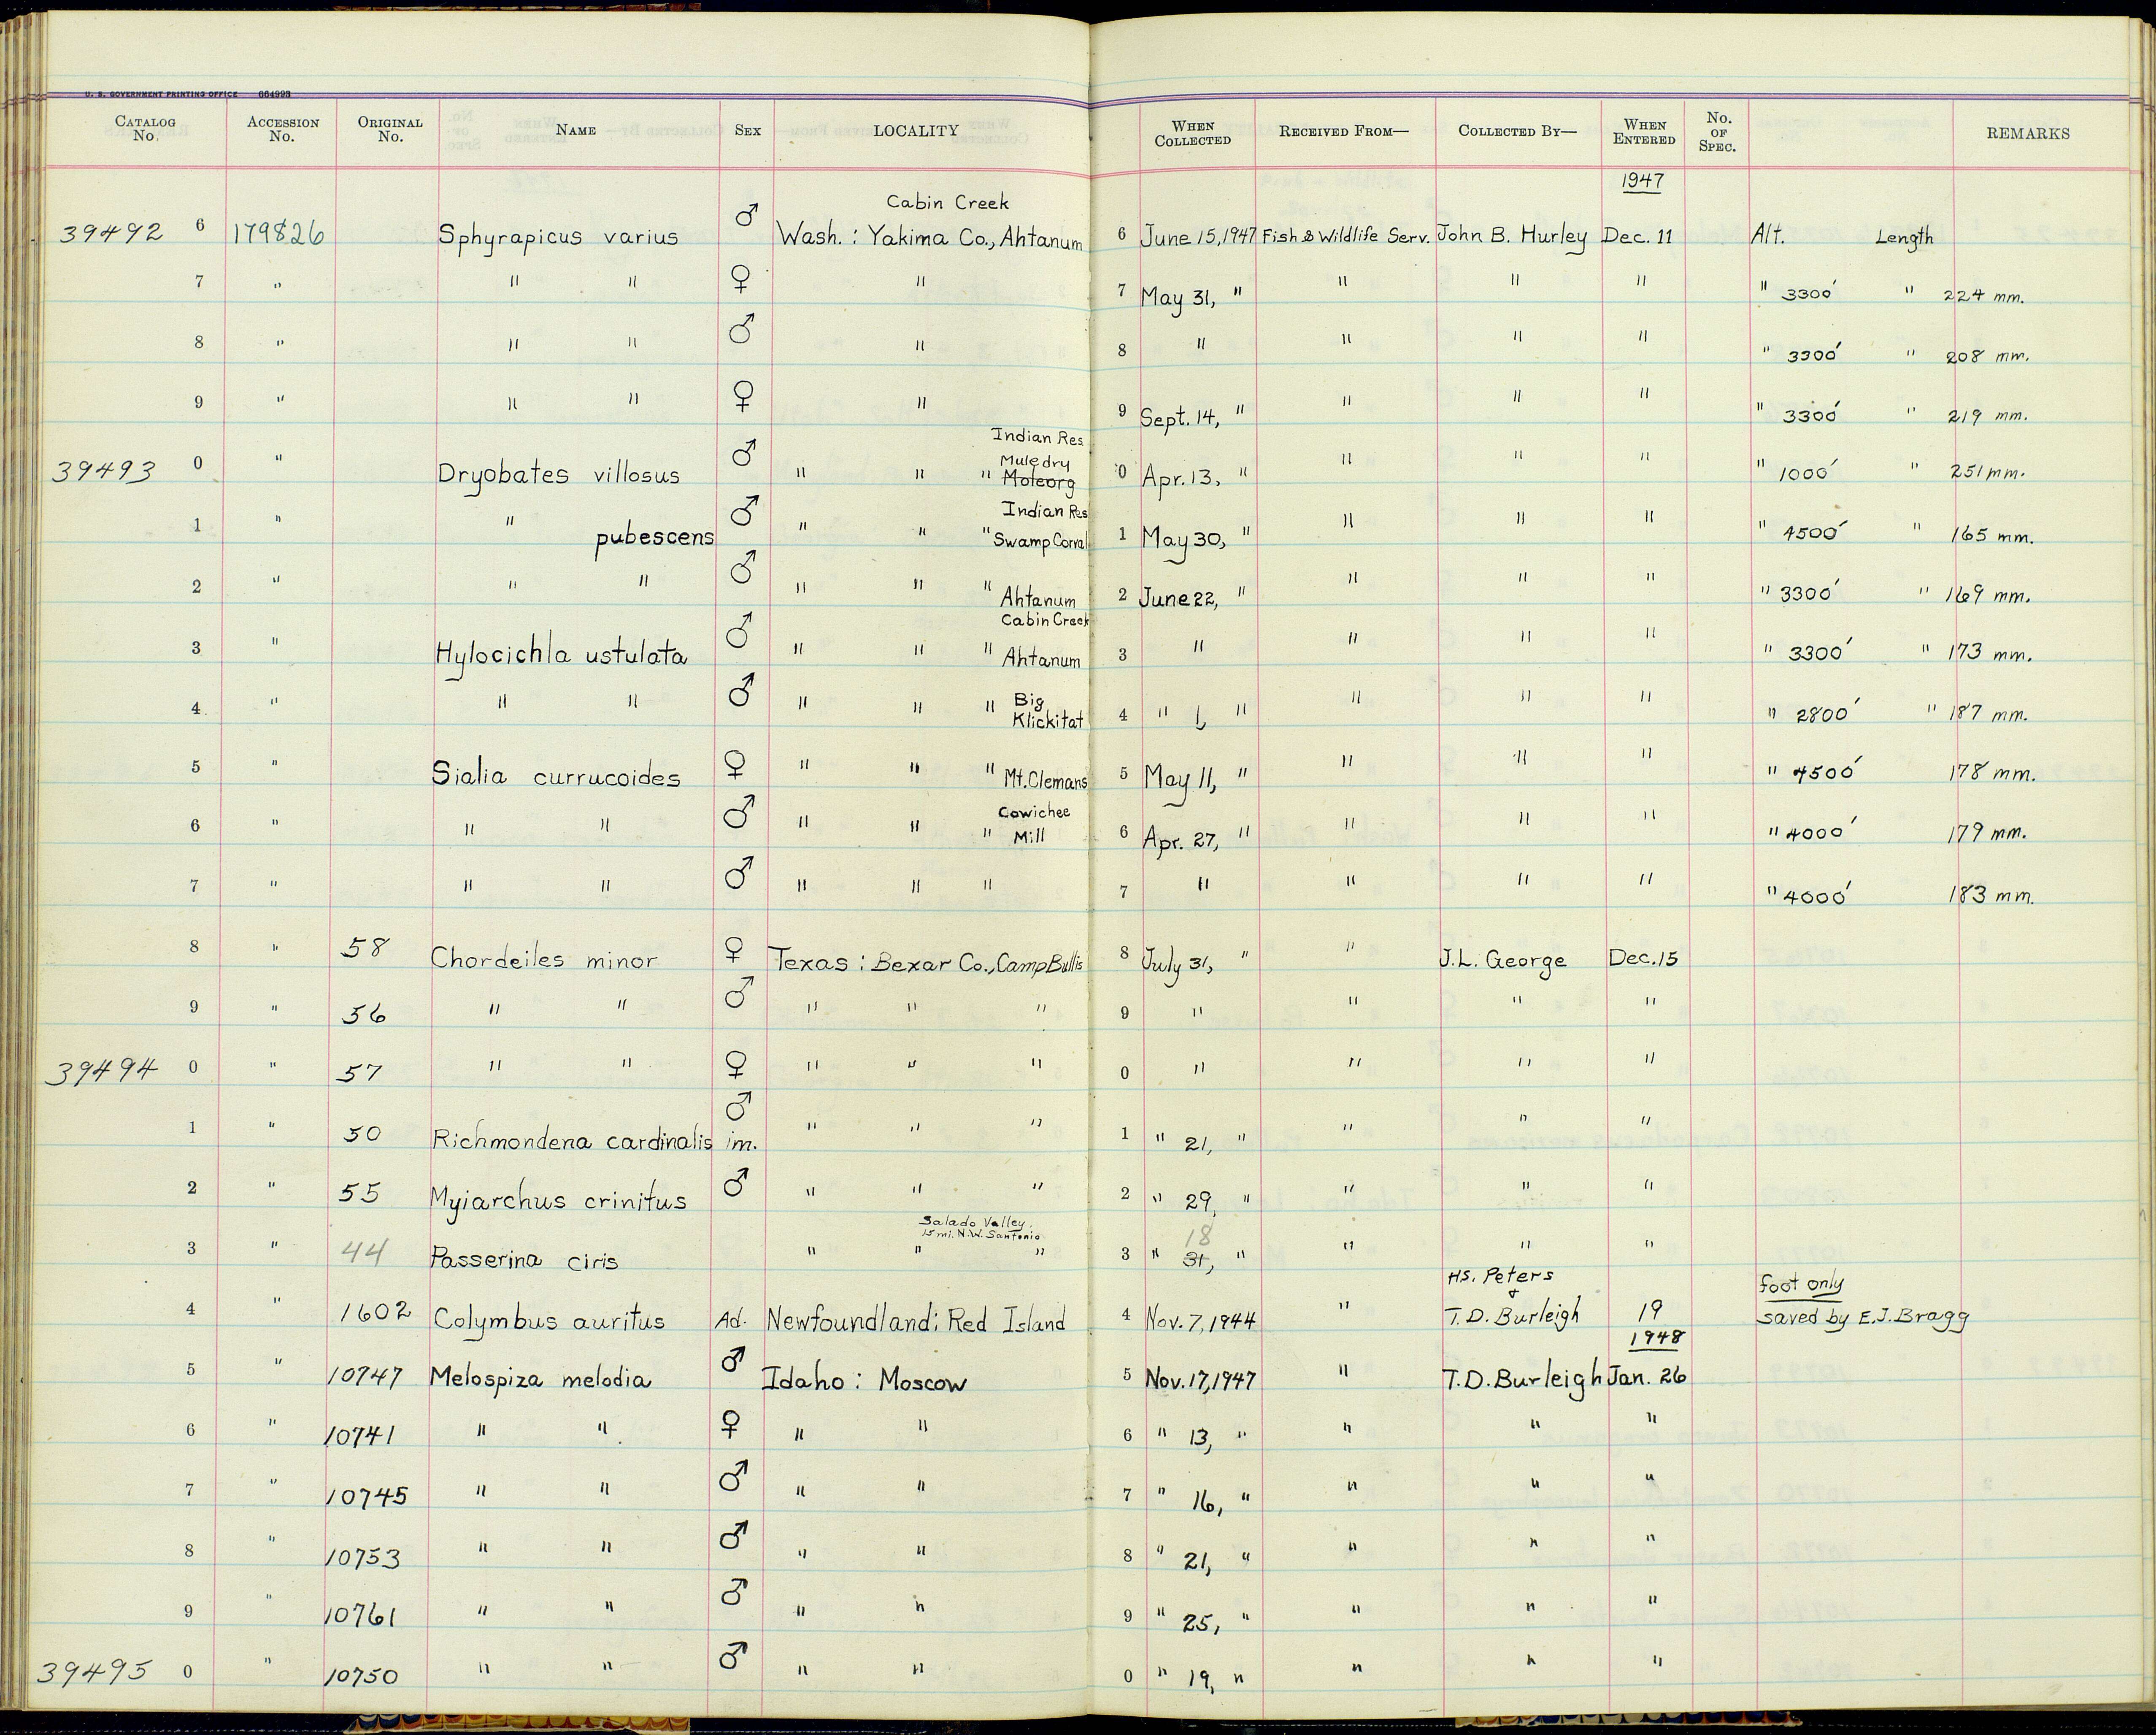 U. S. GOVERNMENT PRINTING OFFICE 664993
CATALOG No. ACCESSION No. ORIGINAL No. NAME SEX LOCALITY WHEN COLLECTED RECEIVED FROM— COLLECTED BY— WHEN ENTERED No. OF SPEC. REMARKS
1947
Cabin Creek
39492 6 179826 Sphyrapicus varius ♂ Wash.: Yakima Co., Ahtanum 6 June 15, 1947 Fish & Wildlife Serv. John B. Hurley Dec. 11 Alt. Length
7 " " " ♀ " 7 May 31, " " " " " 3300' " 224 mm.
8 " " " ♂ " 8 " " " " " 3300' " 208 mm.
9 " " " ♀ " 9 Sept. 14, " " " " " 3300' " 219 mm.
Indian Res
Muledry
39493 0 " Dryobates villosus ♂ " " " Moteorg 0 Apr. 13, " " " " " 1000' " 251 mm.
Indian Res
1 " " pubescens ♂ " " " Swamp Corral 1 May 30, " " " " " 4500' " 165 mm.
2 " " " ♂ " " " Ahtanum 2 June 22, " " " " " 3300' " 169 mm.
Cabin Creek
3 " Hylocichla ustulata ♂ " " " Ahtanum 3 " " " " " 3300' " 173 mm.
4 " " " ♂ " " " Big Klickitat 4 " 6 " " " " " 2800' " 187 mm.
5 " Sialia currucoides ♀ " " " Mt. Clemans 5 May 11, " " " " " 4500' 178 mm.
6 " " " ♂ " " " Cowichee Mill 6 Apr. 27, " " " " " 4000' 179 mm.
7 " " " ♂ " " " 7 " " " " " 4000' 183 mm.
8 " 58 Chordeiles minor ♀ Texas: Bexar Co., Camp Bullis 8 July 31, " " J.L. George Dec. 15
9 " 56 " " ♂ " " " 9 " " " "
39494 0 " 57 " " ♀ " " " 0 " " " "
1 " 50 Richmondena cardinalis ♂ im. " " " 1 " 21, " " " "
2 " 55 Myiarchus crinitus ♂ " " " 2 " 29, " " " "
Salado Valley
15 mi. N.W. San Antonio
18
3 " 44 Passerina ciris " " " 3 " 31, " " " "
H.S. Peters
foot only
4 " 1602 Colymbus auritus Ad. Newfoundland: Red Island 4 Nov. 7, 1944 " T.D. Burleigh 19 saved by E.J. Bragg
1948
5 " 10747 Melospiza melodia ♂ Idaho: Moscow 5 Nov. 17, 1947 " T.D. Burleigh Jan. 26
6 " 10741 " " ♀ " " 6 " 13, " " " "
7 " 10745 " " ♂ " " 7 " 16, " " " "
8 " 10753 " " ♂ " " 8 " 21, " " " "
9 " 10761 " " ♂ " " 9 " 25, " " " "
39495 0 " 10750 " " ♂ " " 0 " 19, " " " "